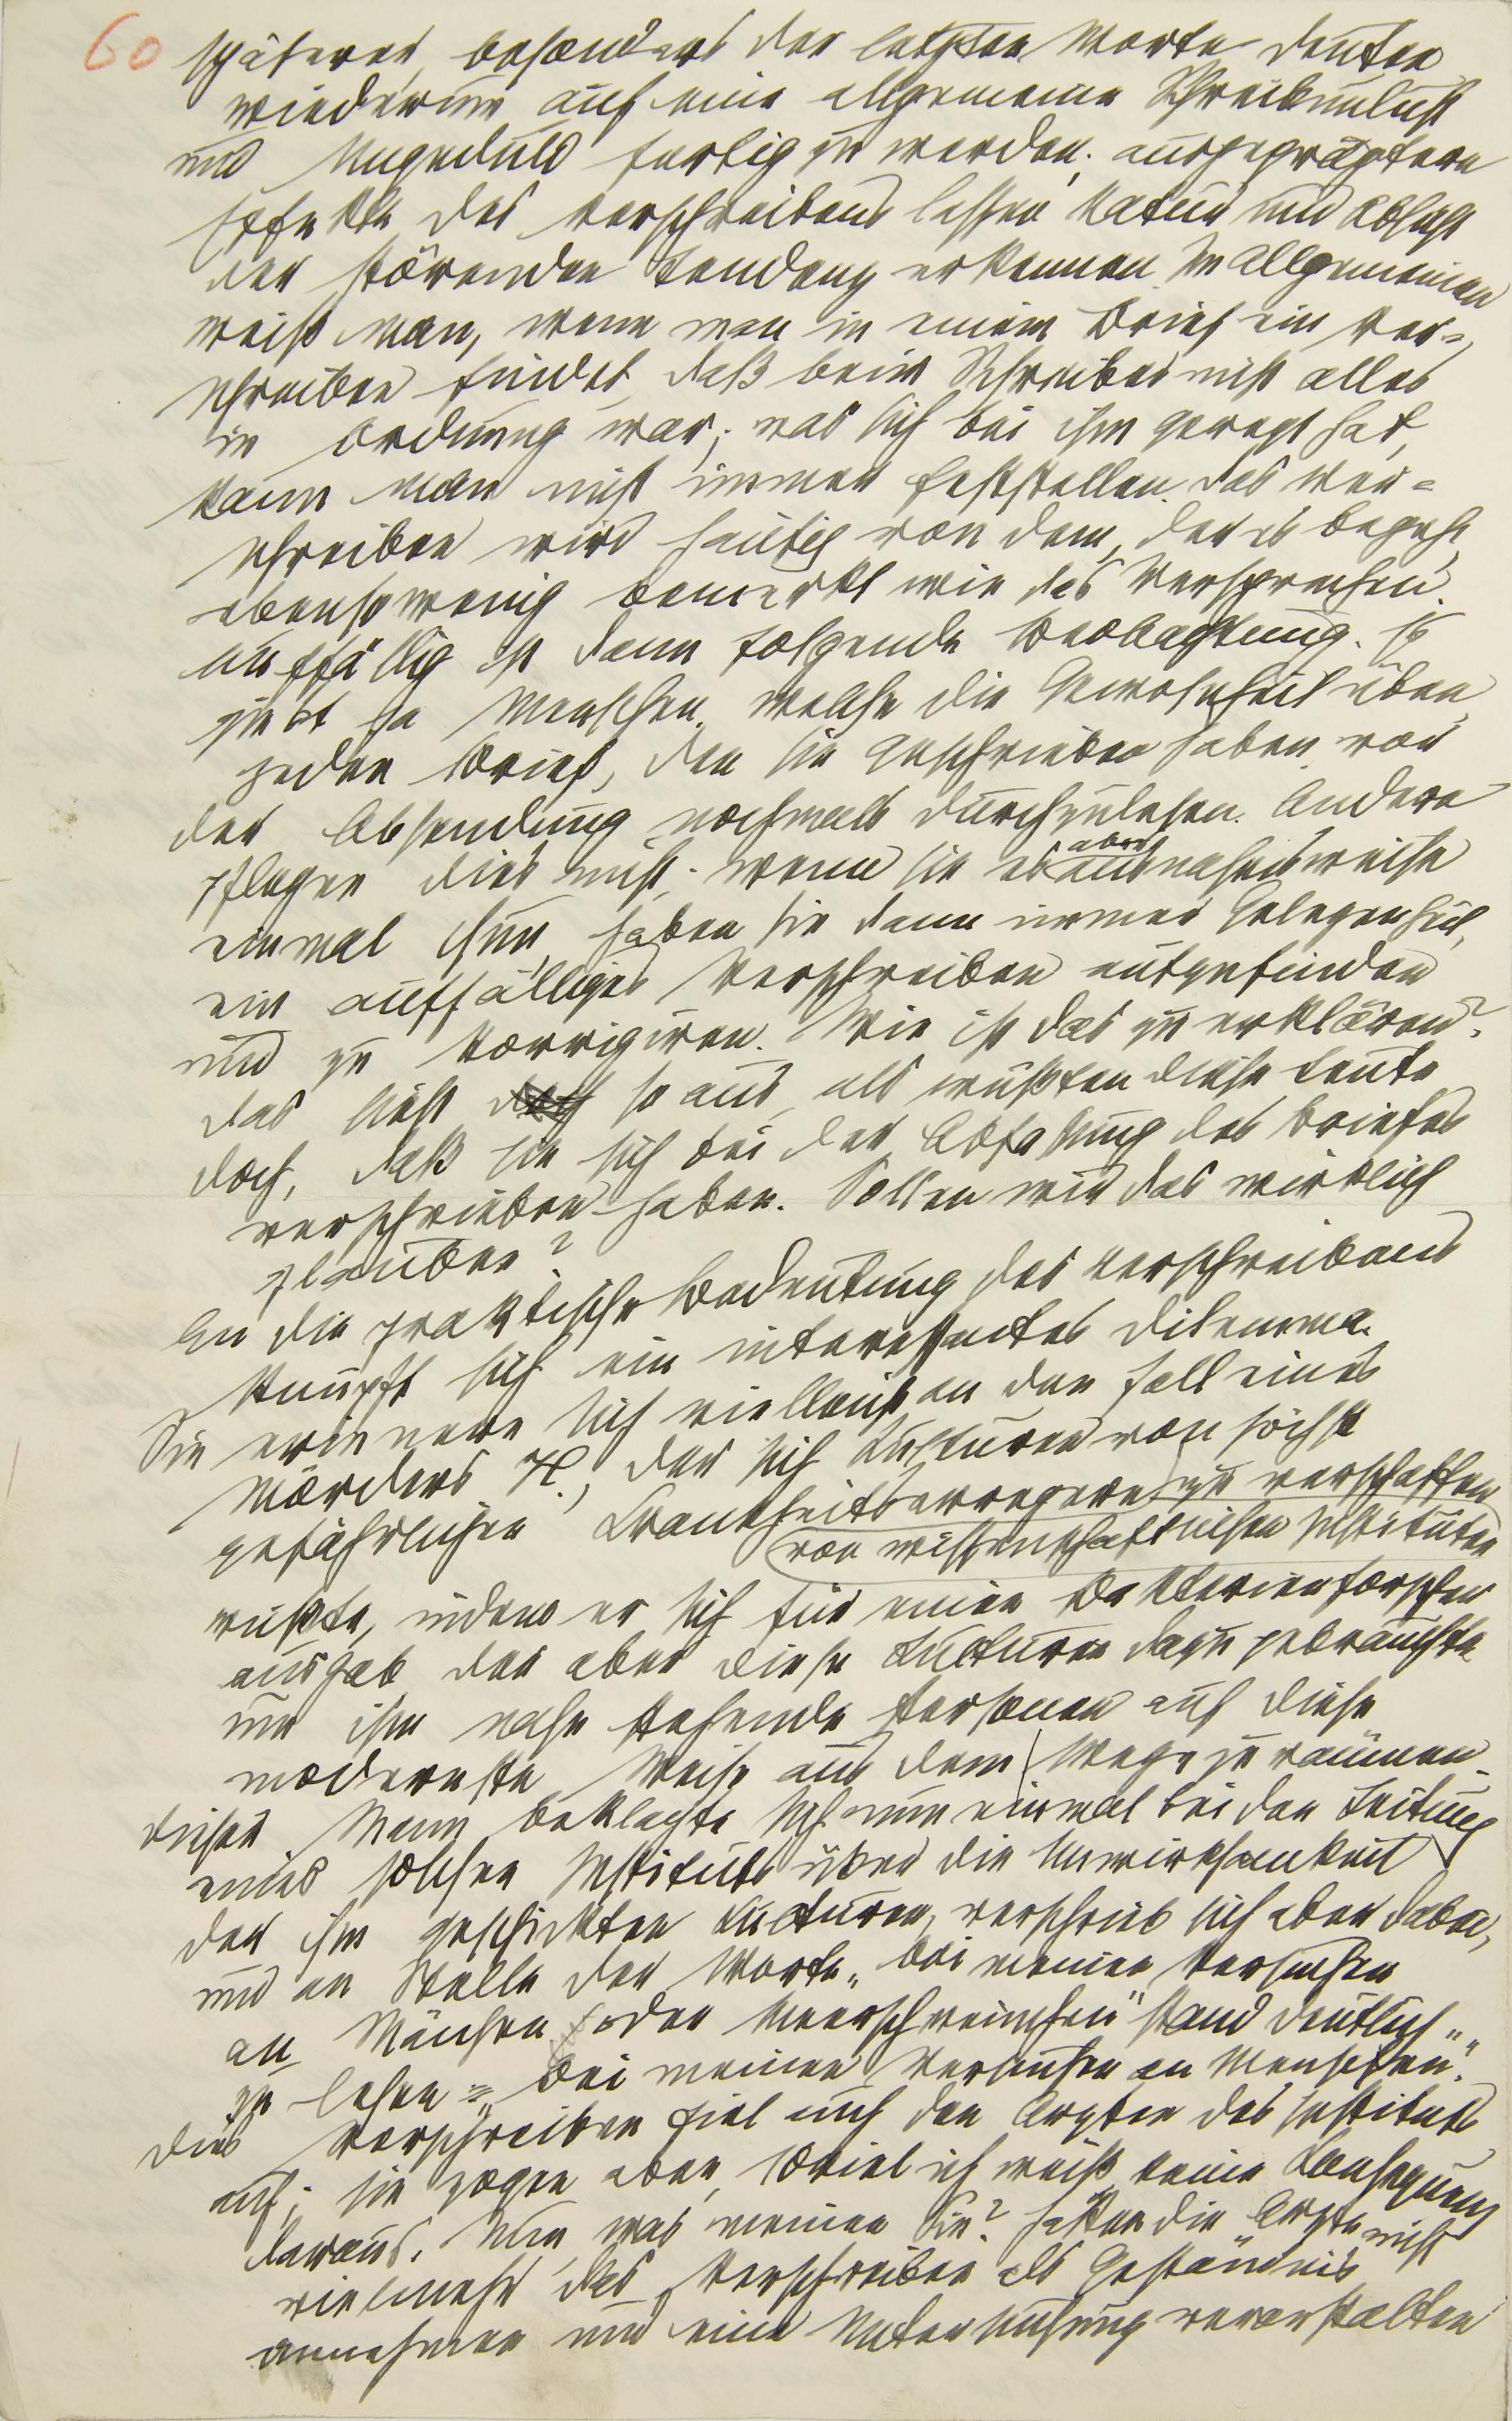 60
späterer, besonders der letzten Worte deuten
wiederum auf eine allgemeine Schreibunlust
und Ungeduld fertig zu werden; ausgeprägtere
Effekte des Verschreibens lassen Natur und Absicht
der störenden Tendenz erkennen. Im Allgemeinen
weiß man, wenn man in einem Brief ein Ver-
schreiben findet, daß beim Schreiber nicht alles
in Ordnung war; was sich bei ihm geregt hat,
kann man nicht immer feststellen. Das Ver-
schreiben wird häufig von dem, der es begeht,
ebensowenig bemerkt wie das Versprechen.
Auffällig ist dann folgende Beobachtung. Es
giebt ja Menschen, welche die Gewohnheit üben,
jeden Brief, den sie geschrieben haben, vor
der Absendung nochmals durchzulesen. Andere
pflegen dies nicht; wenn sie es aber ausnahmsweise
einmal thun, haben sie dann immer Gelegenheit,
ein auffälliges Verschreiben aufzufinden
und zu korrigiren. Wie ist das zu erklären?
Das sieht doch so aus, als wüßten diese Leute
doch, daß sie sich bei der Abfaßung des Briefes
verschrieben haben. Sollen wir das wirklich
glauben?
An die praktische Bedeutung des Verschreibens
knüpft sich ein interessantes Dilemma.
Sie erinnern sich vielleicht an den Fall eines
Mörders H., der sich Kulturen von höchst
gefährlichen Krankheitserregern zu verschaffen
von wissenschaftlichen Instituten
wußte, indem er sich für einen Bakterienforscher
ausgab, der aber diese Kulturen dazu gebrauchte
um ihm nahe stehende Personen auf diese
modernste Weise aus dem Wege zu räumen.
Dieser Mann beklagte sich nun einmal bei der Leitung
eines solchen Instituts über die Unwirksamkeit
der ihm geschickten Kulturen, verschrieb sich aber dabei,
und an Stelle der Worte „bei meinen Versuchen
an Mäusen oder Meerschweinchen" stand deutlich
zu lesen „bei meinen Versuchen an Menschen".
Dies Verschreiben fiel auch den Ärzten des Instituts
auf; sie zogen aber, soviel ich weiß, keine Consequenz
daraus. Nun, was meinen Sie? Hätten die Ärzte nicht
vielmehr das Verschreiben als Geständnis
annehmen und eine Untersuchung veranstalten